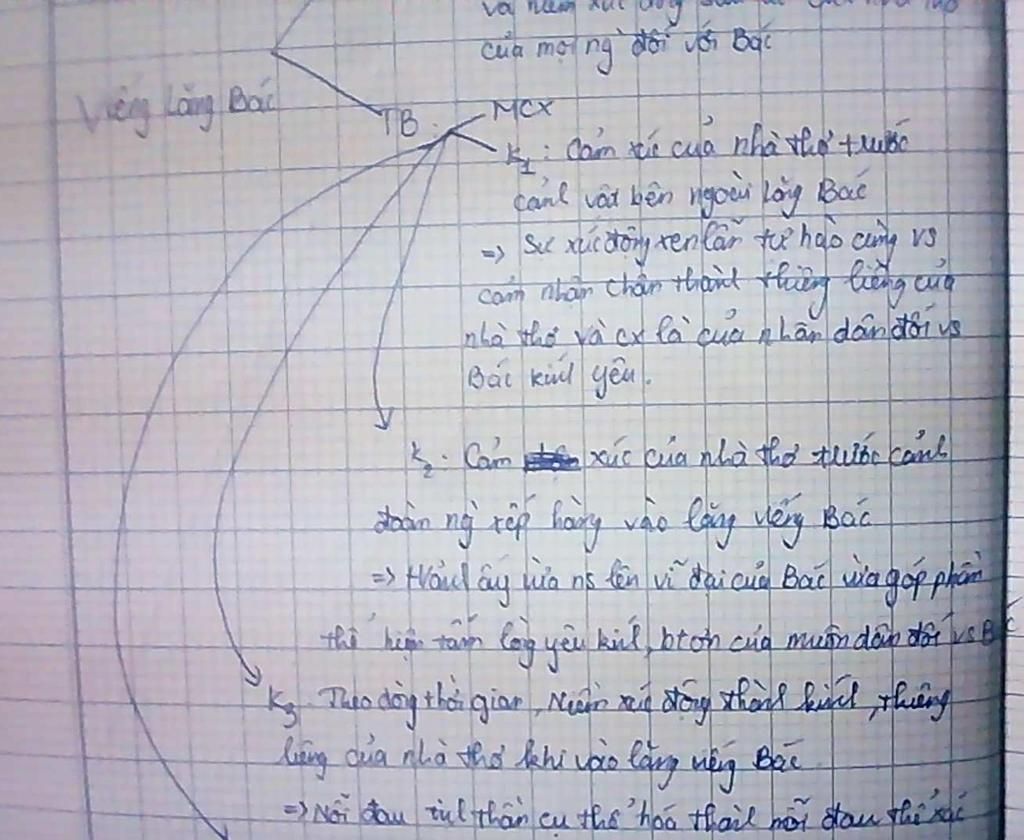 và niềm xúc động
của mọi ng` đối với Bác
Viếng lăng Bác
TB. MCX
K1: Cảm xúc của nhà thơ trước
cảnh vật bên ngoài lăng Bác
=> Sự xúc động xen lẫn tự hào cùng vs
cảm nhận chân thành thiêng liêng của
nhà thơ và cx là của nhân dân đối vs
Bác kính yêu.
K2: Cảm xúc của nhà thơ trước cảnh
đoàn ng` xếp hàng vào lăng viếng Bác
=> H/ảnh ấy vừa ns lên vĩ đại của Bác vừa góp phần
thể hiện tấm lòng yêu kính, b.ơn của muôn dân đối vs B
K3. Theo dòng thời gian, Niềm xúc động thành kính, thiêng
liêng của nhà thơ khi vào lăng viếng Bác
=> Nỗi đau tinh thần cụ thể hoá thành nỗi đau thể xác